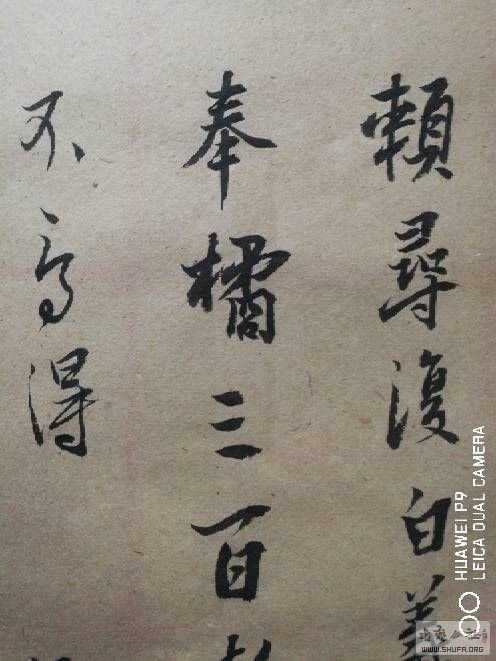 賴尋復白羲
奉橘三百
不得
HUAWEI P9
LEICA DUAL CAMERA
WWW.SHUFA.ORG